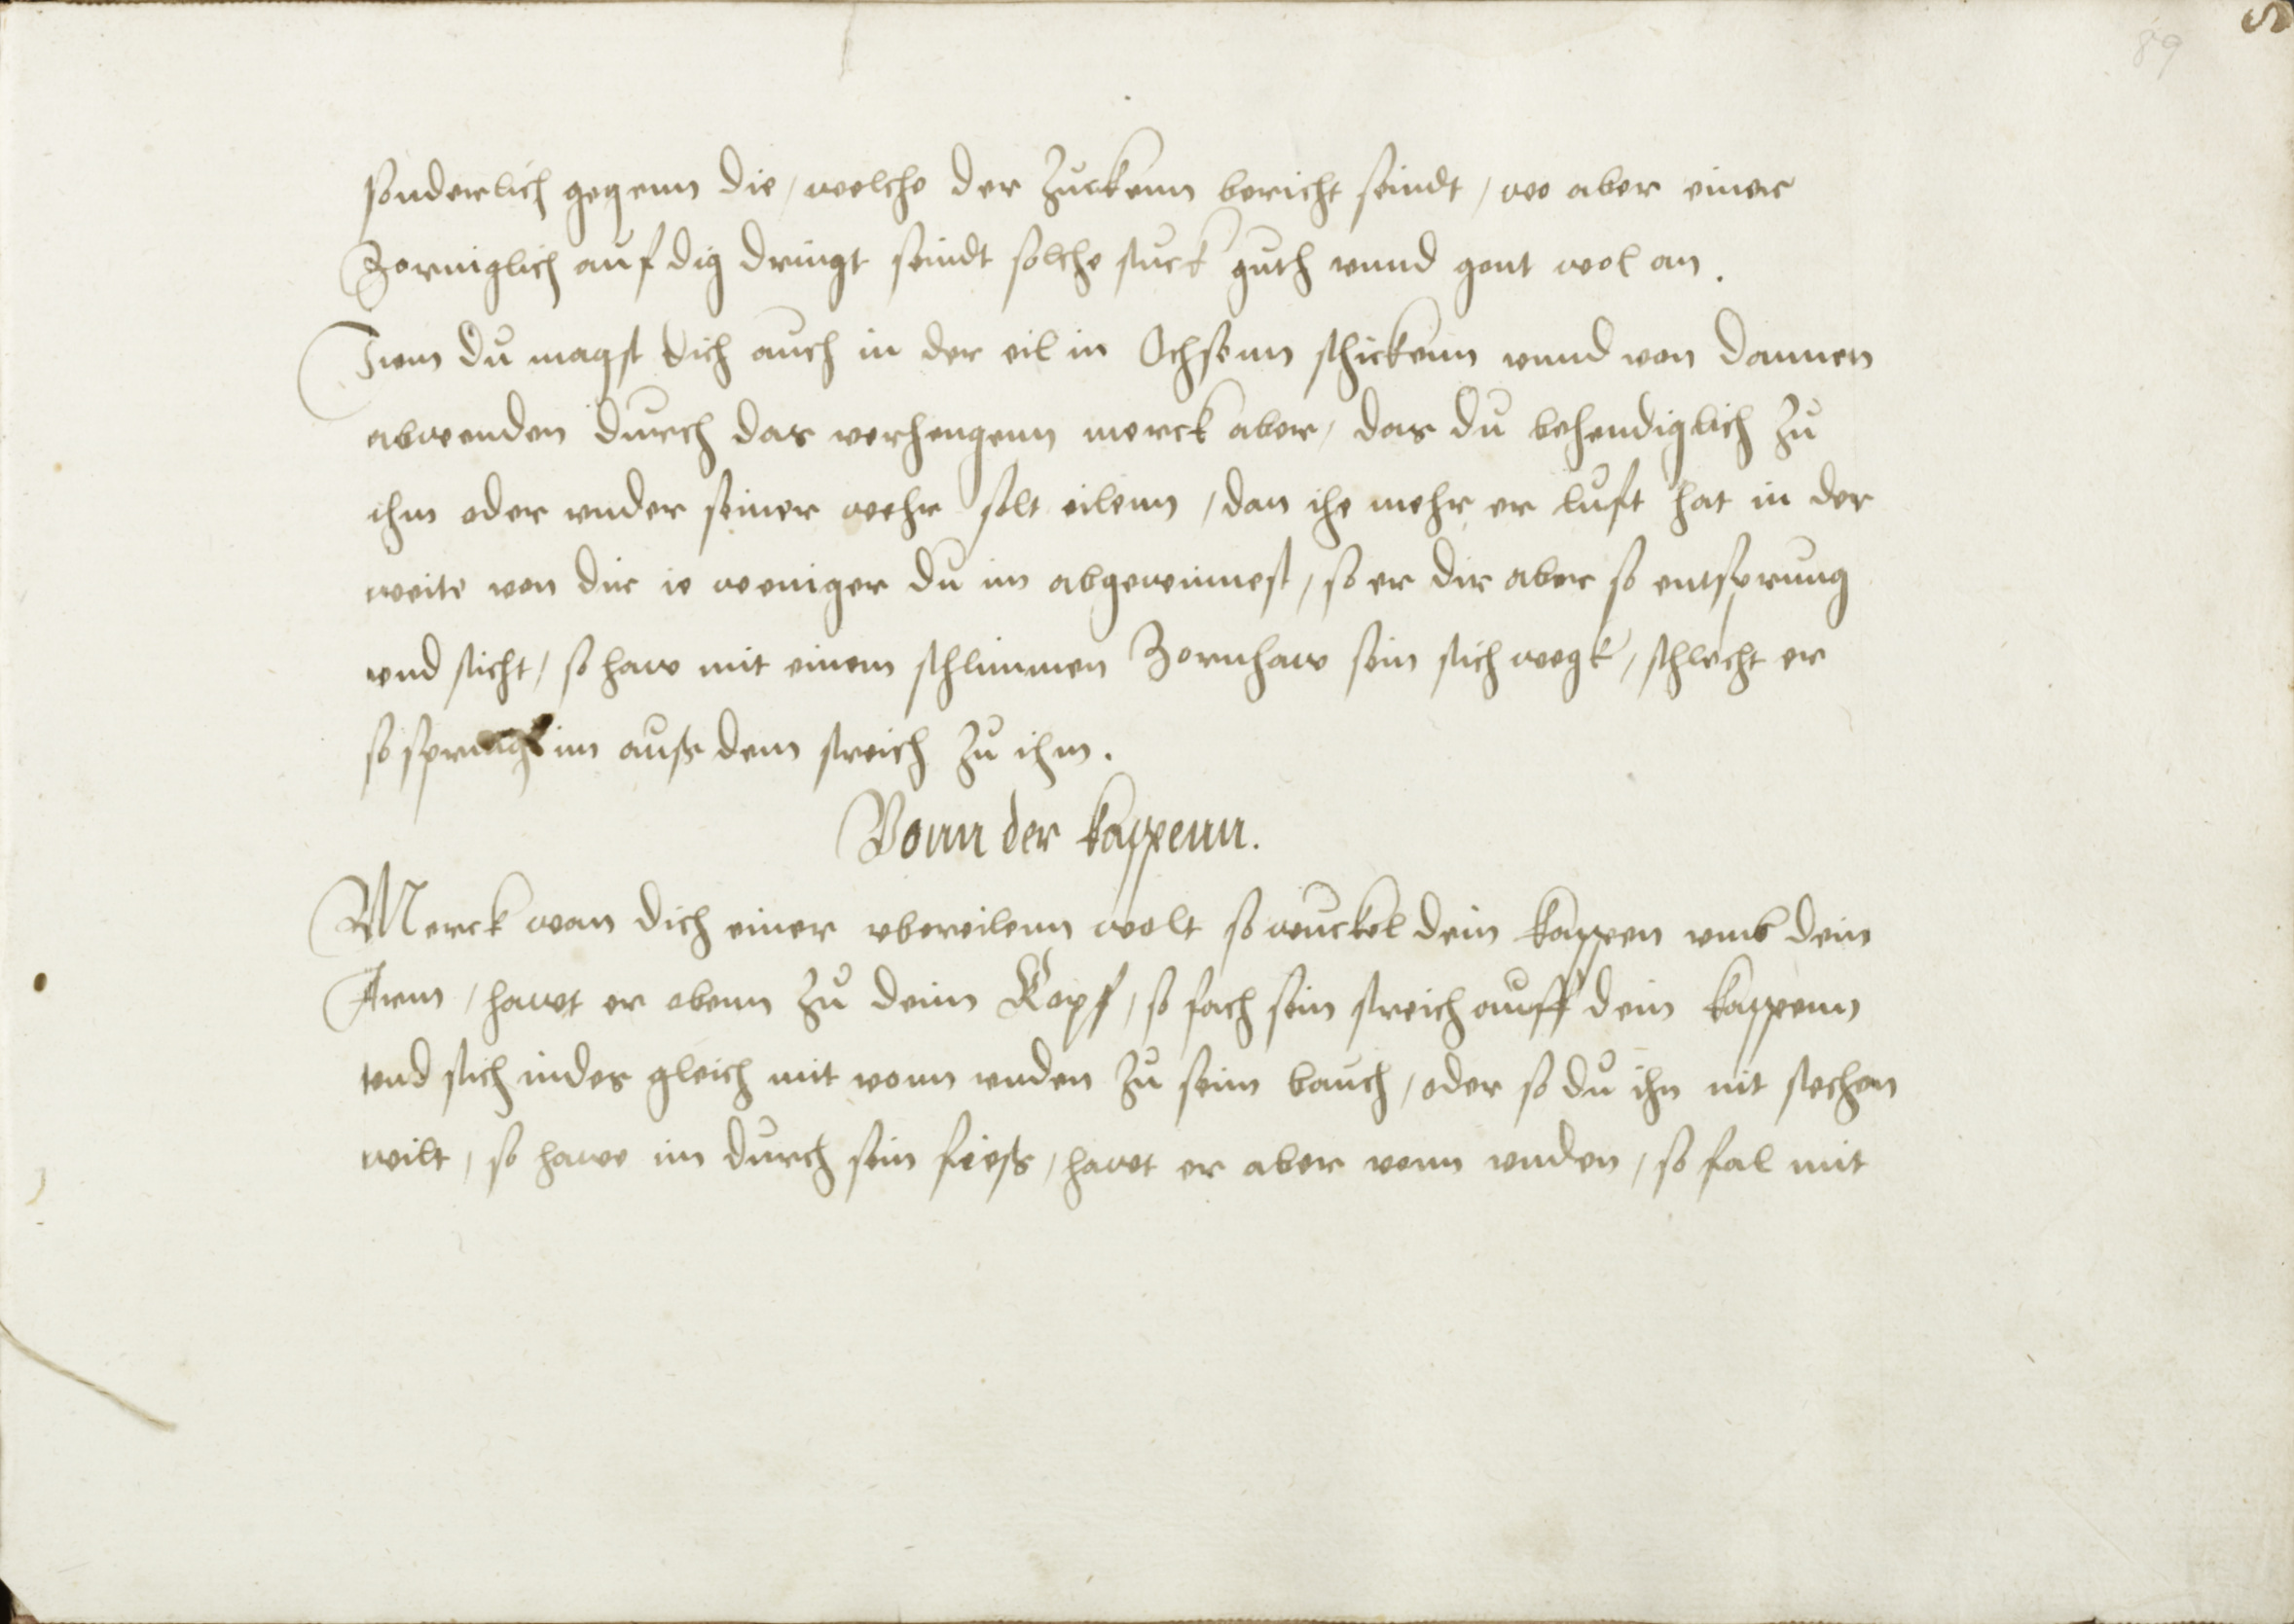 89
sonderlich gegenn die, welche der Zuckenn bericht seindt, wo aber einer
Zorniglich auf dig dringt seindt solche stuck guth vnnd gent wol an.
Item du magst dich auch in der eil in Ochsenn schickenn vnnd von dannen
abwenden durch das verhengenn merck aber, das du behendiglich Zu
ihm oder vnder seiner wehr solt eilenn, dan ihe mehr er luft hat in der
weite von dir ie weniger du im abgewinnest, so er dir aber so entsprung
vnd sticht, so haw mit einem schlimmen Zornhaw sein stich wegk, schlecht er
so spring im auss dem streich Zu ihm.
Vonn der kappenn.
Merck wan dich einer vbereilenn wolt so wuckel dein kappen vmb dein
Arm, hawt er obenn Zu deim Kopf, so fach sein streich auff dein kappenn
vnd stich indes gleich mit vonn vnden Zu seim bauch, oder so du ihn nit stechen
wilt, so hawe im durch sein fiess, hawt er aber vonn vnden, so fal mit